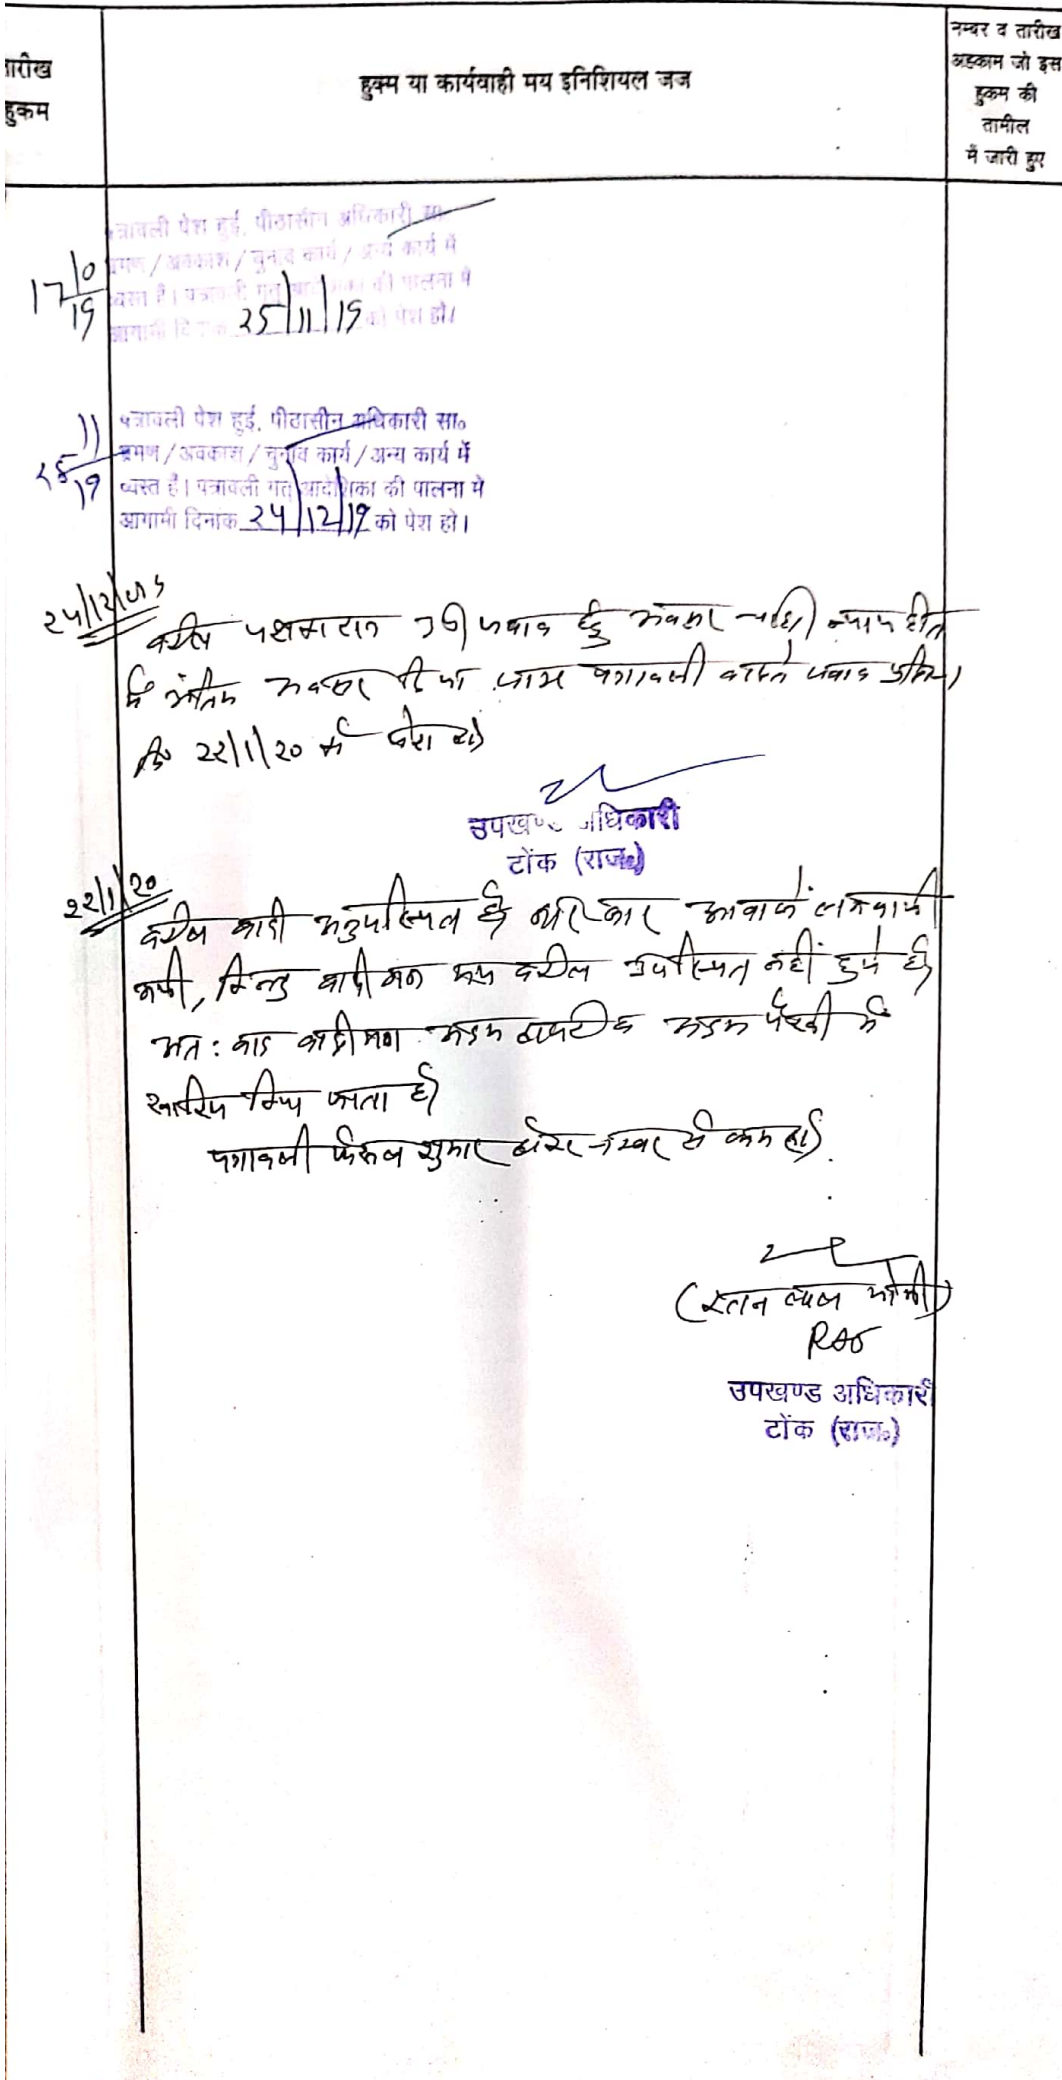 तारीख
हुकम
हुक्म या कार्यवाही मय इनिशियल जज
नम्बर व तारीख
अहकाम जो इस
हुकम की
तामील
में जारी हुए
17/10/19
पत्रावली पेश हुई, पीठासीन अधिकारी सा०
भ्रमण / अवकाश / चुनाव कार्य / अन्य कार्य में
व्यस्त है। पत्रावली गत आदेशिका की पालना में
आगामी दिनांक 25/11/19 को पेश हो।
25/11/19
पत्रावली पेश हुई, पीठासीन अधिकारी सा०
भ्रमण / अवकाश / चुनाव कार्य / अन्य कार्य में
व्यस्त है। पत्रावली गत आदेशिका की पालना में
आगामी दिनांक 24/12/19 को पेश हो।
वकील पक्षकारान जवाब हेतु अवसर चाहा न्याय हित
में अंतिम अवसर दिया जाय पत्रावली वास्ते जवाब
दि० 22/1/20 को पेश हो
उपखण्ड अधिकारी
टोंक (राज०)
22/1/20
वकील वादी अनुपस्थित है बार बार आवाजें लगवायी
गयी, किन्तु वादीगण मय वकील उपस्थित नहीं हुये है
अतः वाद वादीगण अदम हाजरी व अदम पैरवी में
खारिज किया जाता है
पत्रावली फैसल शुमार होकर नम्बर से कम हो
(रतन लाल योगी)
RAS
उपखण्ड अधिकारी
टोंक (राज०)